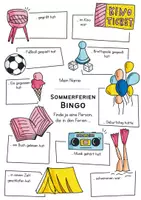 ...gegrillt hat
...im Kino war
KINO
TICKET
...Fußball gespielt hat
...Brettspiele gespielt hat
Mein Name
...Eis gegessen hat
SOMMERFERIEN
BINGO
Finde je eine Person,
die in den Ferien...
...Geburtstag hatte
...ein Buch gelesen hat
...Musik gehört hat
...in einem Zelt
geschlafen hat
...schwimmen war